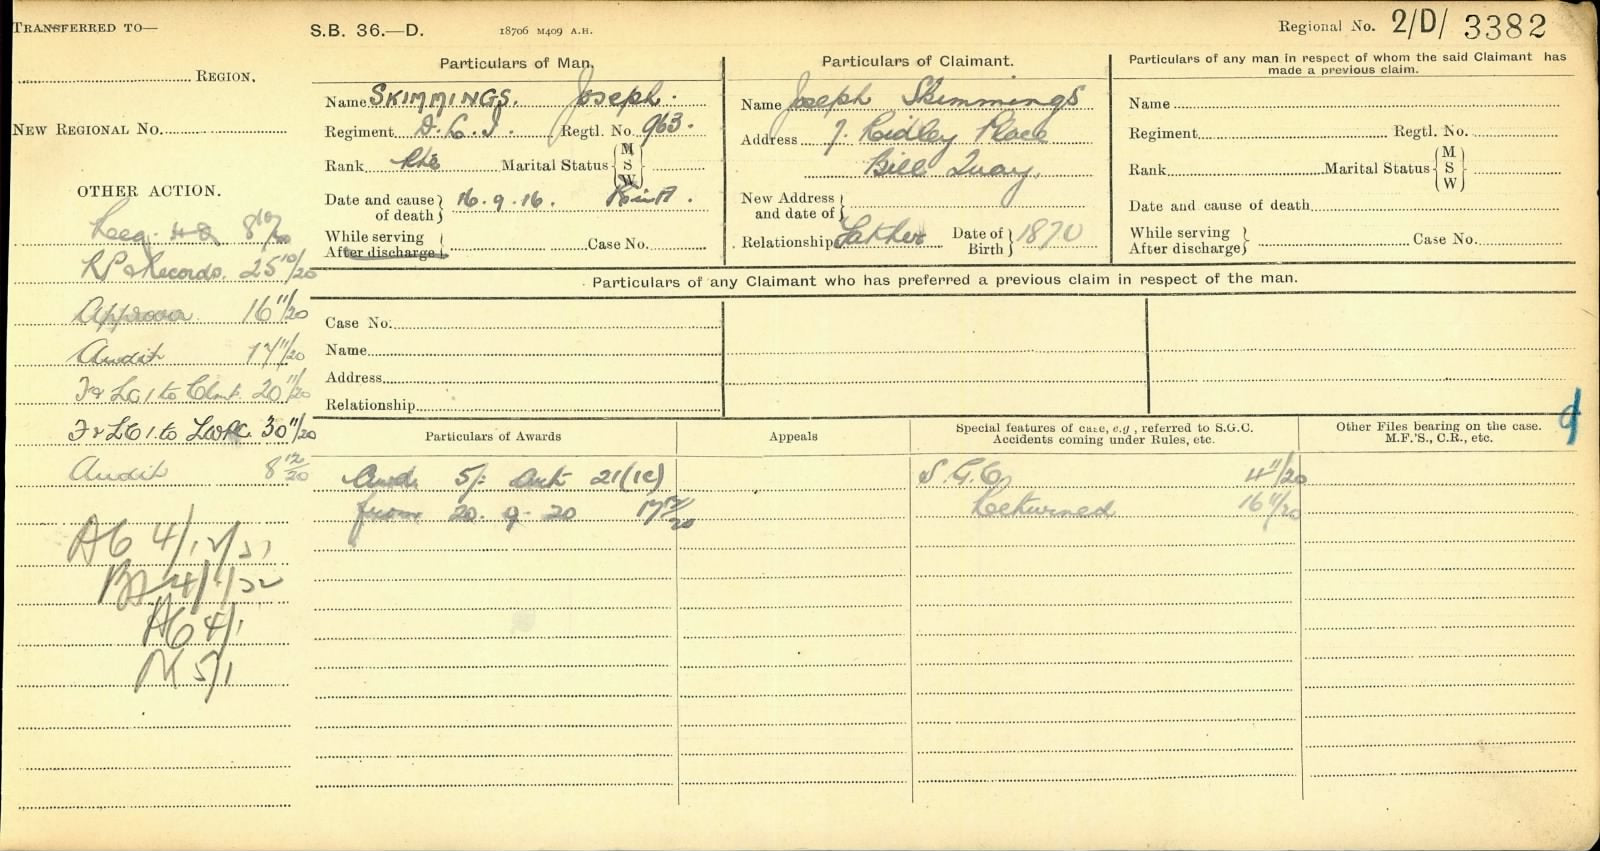 TRANSFERRED TO—
REGION,
NEW REGIONAL No.
OTHER ACTION.
8 10/20
RP & Records. 25 10/20
Approva 16 11/20
Audit 17 11/20
F & LC 1 to Clmt. 20 11/20
F & LC 1. to LWPC. 30 11/20
Audit 8 12/20
4/1
5/1
S.B. 36.—D.
18706 M409 A.H.
Regional No. 2/D/ 3382
Particulars of Man.
Name SKIMMINGS. Joseph.
Regiment D.L.I. Regtl. No. 963.
Rank Pte Marital Status { M S W }
Date and cause of death } 16.9.16. K in A.
While serving
After discharge } Case No.
Particulars of Claimant.
Name Joseph Skimmings
Address 7. Ridley Place
Bill Quay.
New Address
and date of }
Relationship Father Date of Birth } 1870
Particulars of any man in respect of whom the said Claimant has
made a previous claim.
Name
Regiment Regtl. No.
Rank Marital Status { M S W }
Date and cause of death
While serving
After discharge } Case No.
Particulars of any Claimant who has preferred a previous claim in respect of the man.
Case No.
Name
Address
Relationship
Particulars of Awards
Awd. 5/- Art 21(1c)
from 20. 9. 20 17 12/20
Appeals
Special features of case, e.g, referred to S.G.C.
Accidents coming under Rules, etc.
S.G.C. 4 11/20
Returned 16 11/20
Other Files bearing on the case.
M.F.'S., C.R., etc.